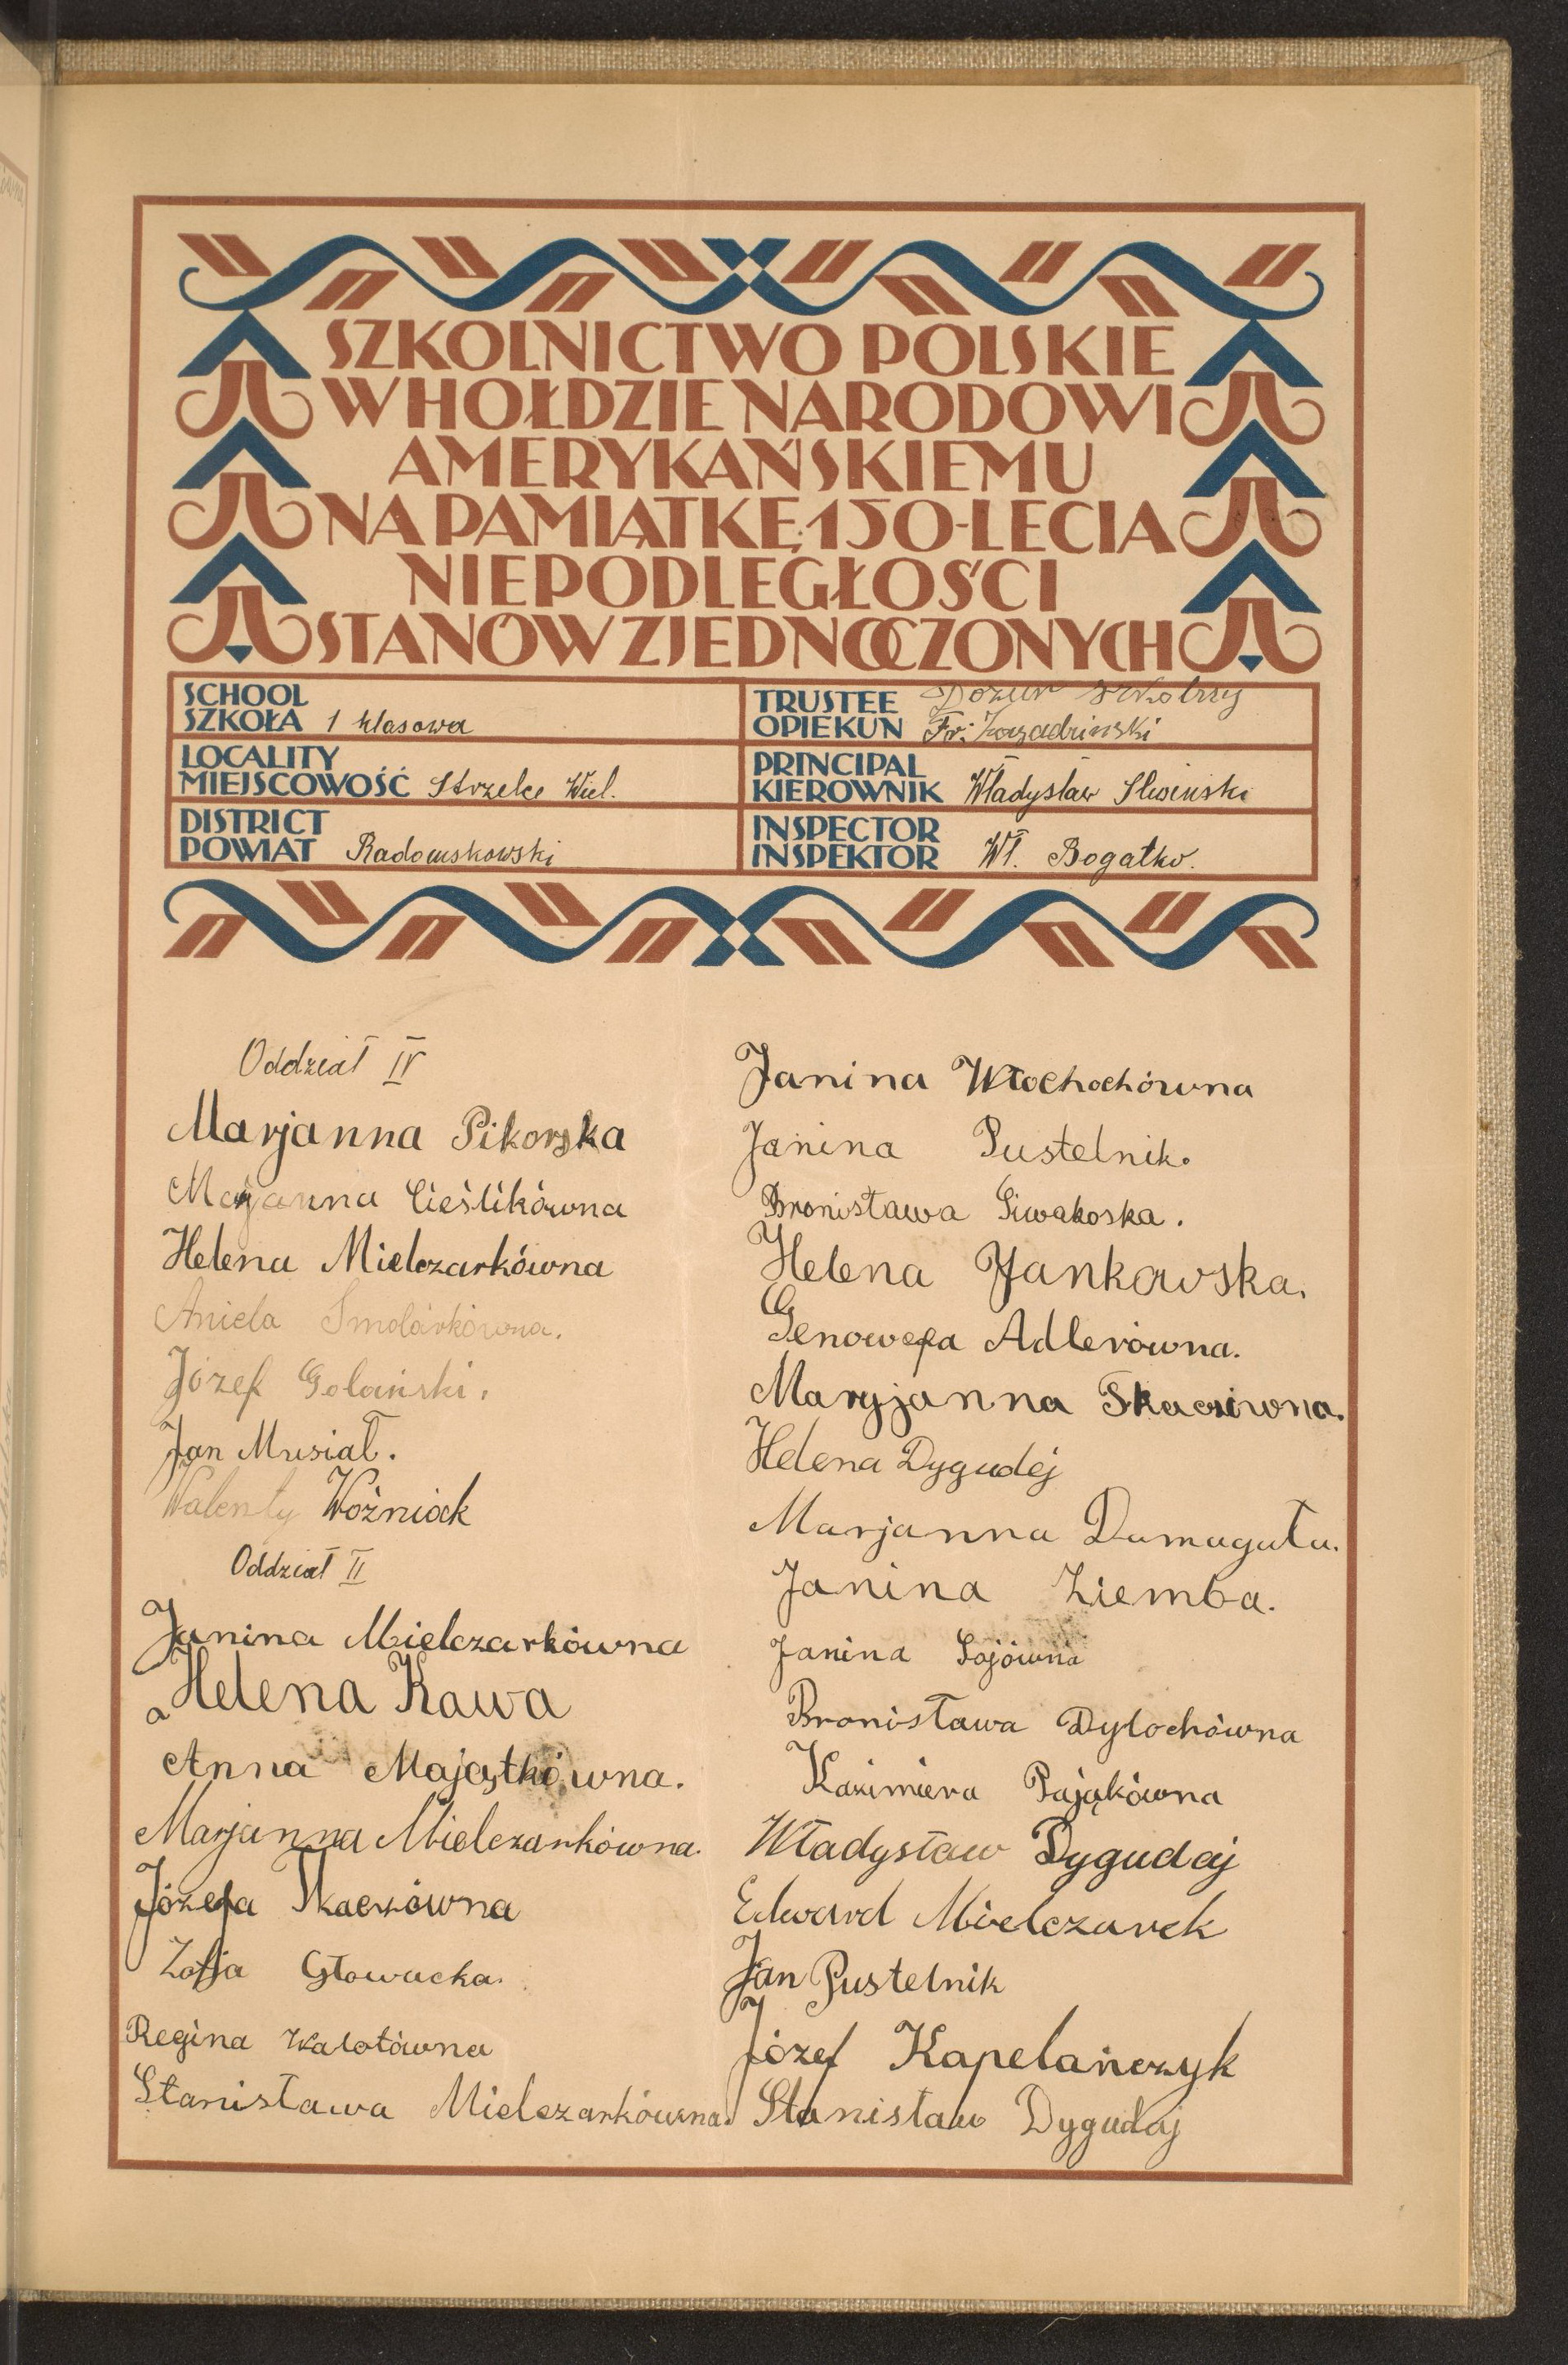 SZKOLNICTWO POLSKIE
W HOŁDZIE NARODOWI
AMERYKAŃSKIEMU
NA PAMIĄTKĘ 150-LECIA
NIEPODLEGŁOŚCI
STANÓW ZJEDNOCZONYCH
SCHOOL
SZKOŁA 1 klasowa
LOCALITY
MIEJSCOWOŚĆ Strzelce Wiel.
DISTRICT
POWIAT Radomskowski
TRUSTEE Dozur szkolny
OPIEKUN Fr.
PRINCIPAL
KIEROWNIK Władysław Sliwinski
INSPECTOR
INSPEKTOR Wł. Bogatko.
Oddział IV
Marjanna Pikorska
Marjanna Cieślikówna
Helena Mielczarkówna
Aniela Smolarkówna.
Józef Golański.
Jan Musiał.
Walenty Woźniak
Oddział II
Janina Mielczarkówna
Helena Kawa
Anna Majątkówna.
Marjanna Mielczarkówna.
Józefa Tkaczówna
Zofja Głowacka.
Regina Walotówna
Stanisława Mielczarkówna.
Janina Włochochówna
Janina Pustelnik.
Bronisława Siwakoska.
Helena Jankowska.
Genowefa Adlerówna.
Maryjanna
Helena Dygudėj
Marjanna Damagała.
Janina Ziemba.
Janina Sojówna
Bronisława Dylochówna
Kazimiera Pająkówna
Władysław Dygudaj
Edward Mielczarek
Jan Pustelnik
Józef Kapelańczyk
Stanisław Dygudaj